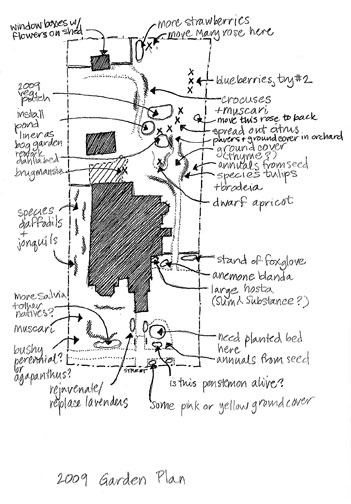 more strawberries
window boxes w/
flowers on shed
move Mary rose here
blueberries, try #2
2009
veg
patch
crocuses
+ muscari
move this rose to back
install
pond
liner as
bog garden
spread out citrus
plvers + ground cover in orchard
rework
dahlia bed
ground cover
(thyme?)
annuals from seed
brugmansia
species tulips
+ brodeia
dwarf apricot
species
daffodils
+
jonquils
stand of foxglove
anemone blanda
large hosta
(Sum & Substance?)
more salvia
+ other
natives?
muscari
need planted bed
here
bushy
perennial?
or
agapanthus?
annuals from seed
STREET
is this penstemon alive?
rejuvenate/
replace lavenders
some pink or yellow ground cover
2009 Garden Plan